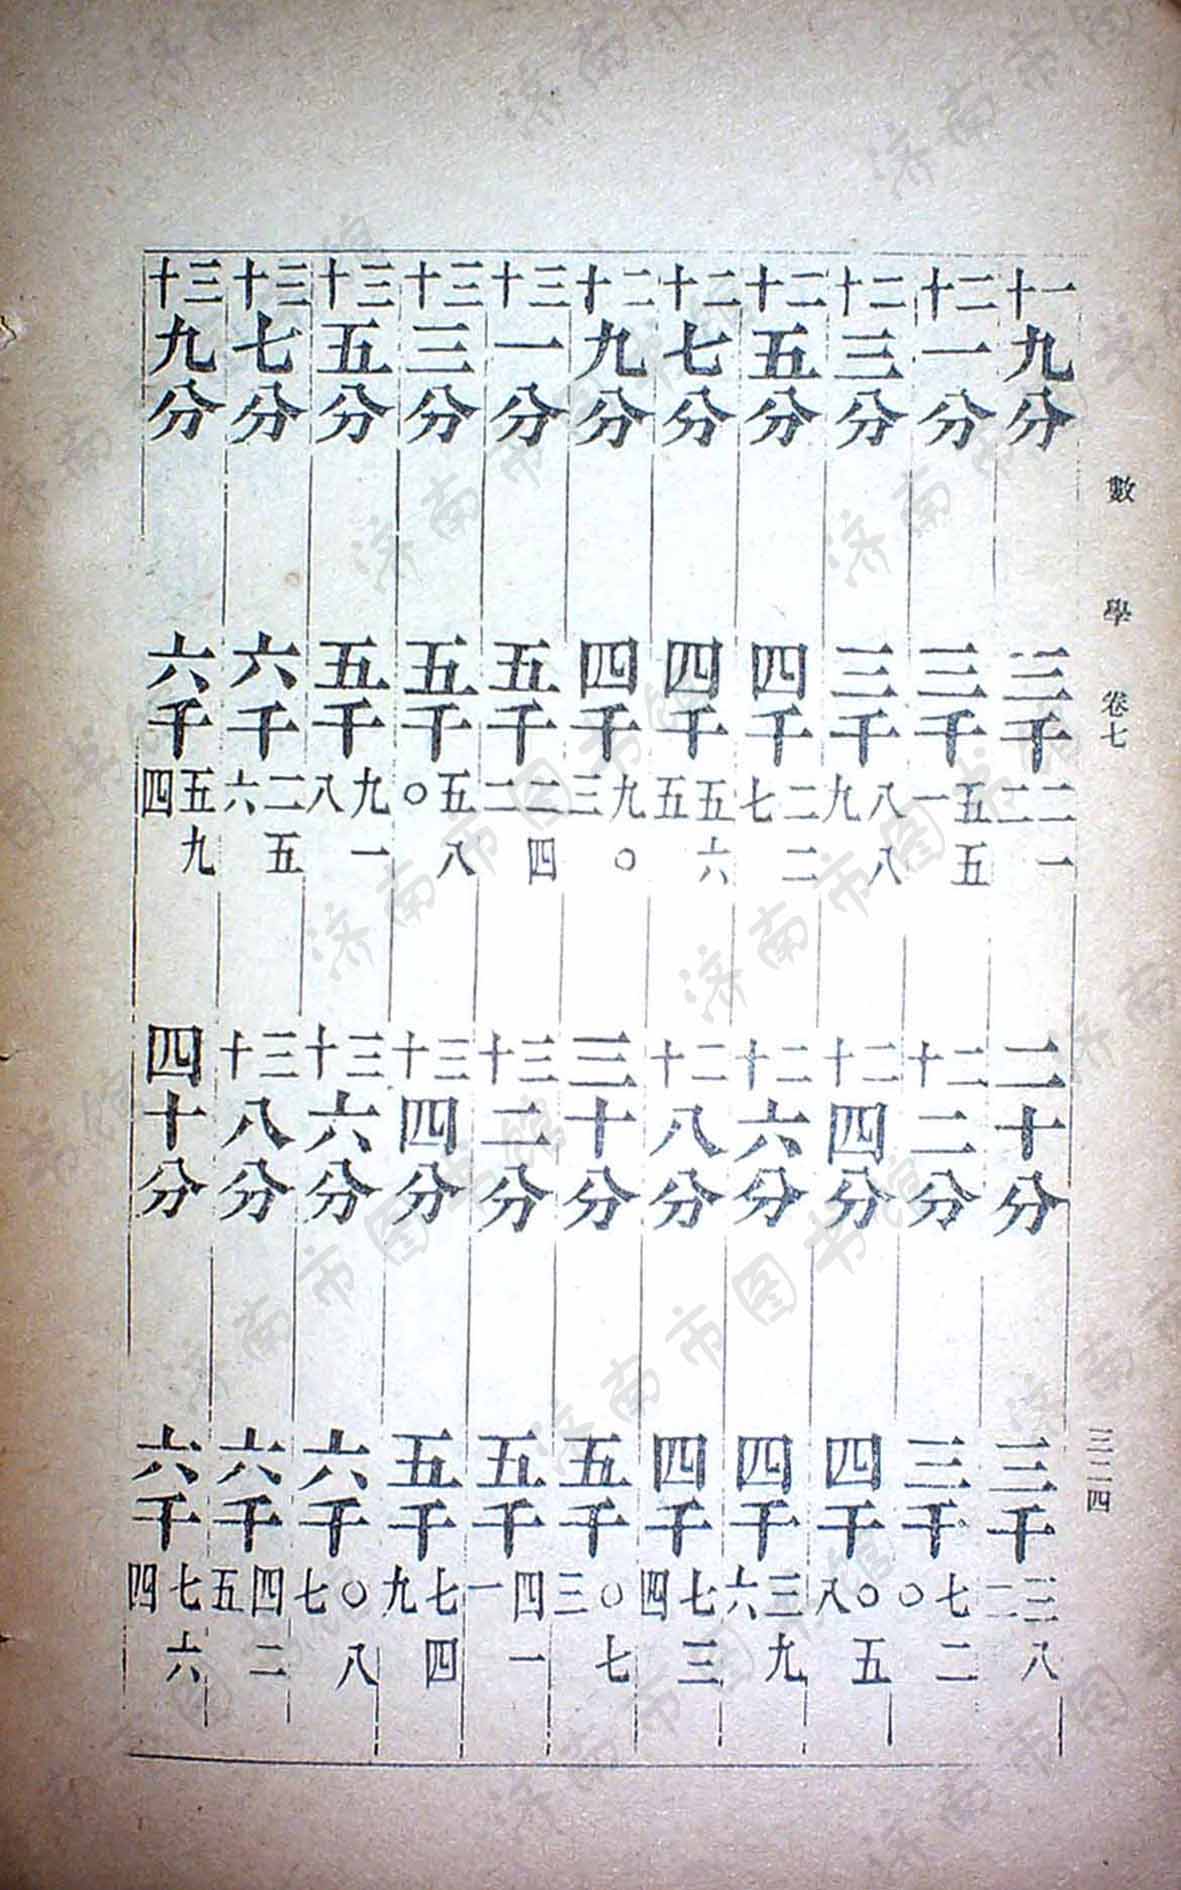 數學 卷七 三二四
一十九分 三千二一二 二十分 三千三八二
二十一分 三千五五一 二十二分 三千七二〇
二十三分 三千八八九 二十四分 四千〇五八
二十五分 四千二二七 二十六分 四千三九六
二十七分 四千五六五 二十八分 四千七三四
二十九分 四千九〇三 三十分 五千〇七三
三十一分 五千二四二 三十二分 五千四一一
三十三分 五千五八〇 三十四分 五千七四九
三十五分 五千九一八 三十六分 六千〇八七
三十七分 六千二五六 三十八分 六千四二五
三十九分 六千五九四 四十分 六千七六四
济南市图书馆